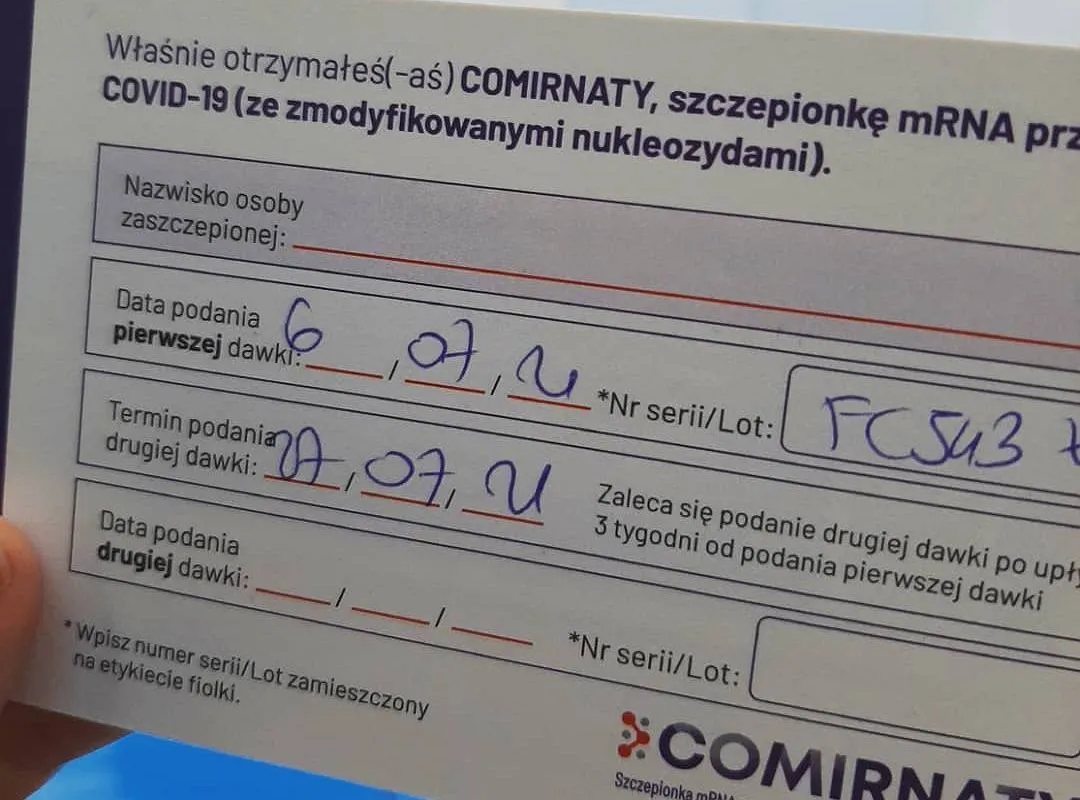 Właśnie otrzymałeś(-aś) COMIRNATY, szczepionkę mRNA
COVID-19 (ze zmodyfikowanymi nukleozydami).
Nazwisko osoby
zaszczepionej:
Data podania
pierwszej dawki: 6 / 07 / 21 *Nr serii/Lot: FC543
Termin podania
drugiej dawki: 27 / 07 / 21
Zaleca się podanie drugiej dawki po
3 tygodni od podania pierwszej dawki
Data podania
drugiej dawki: / / *Nr serii/Lot:
* Wpisz numer serii/Lot zamieszczony
na etykiecie fiolki.
COMIRNATY
Szczepionka